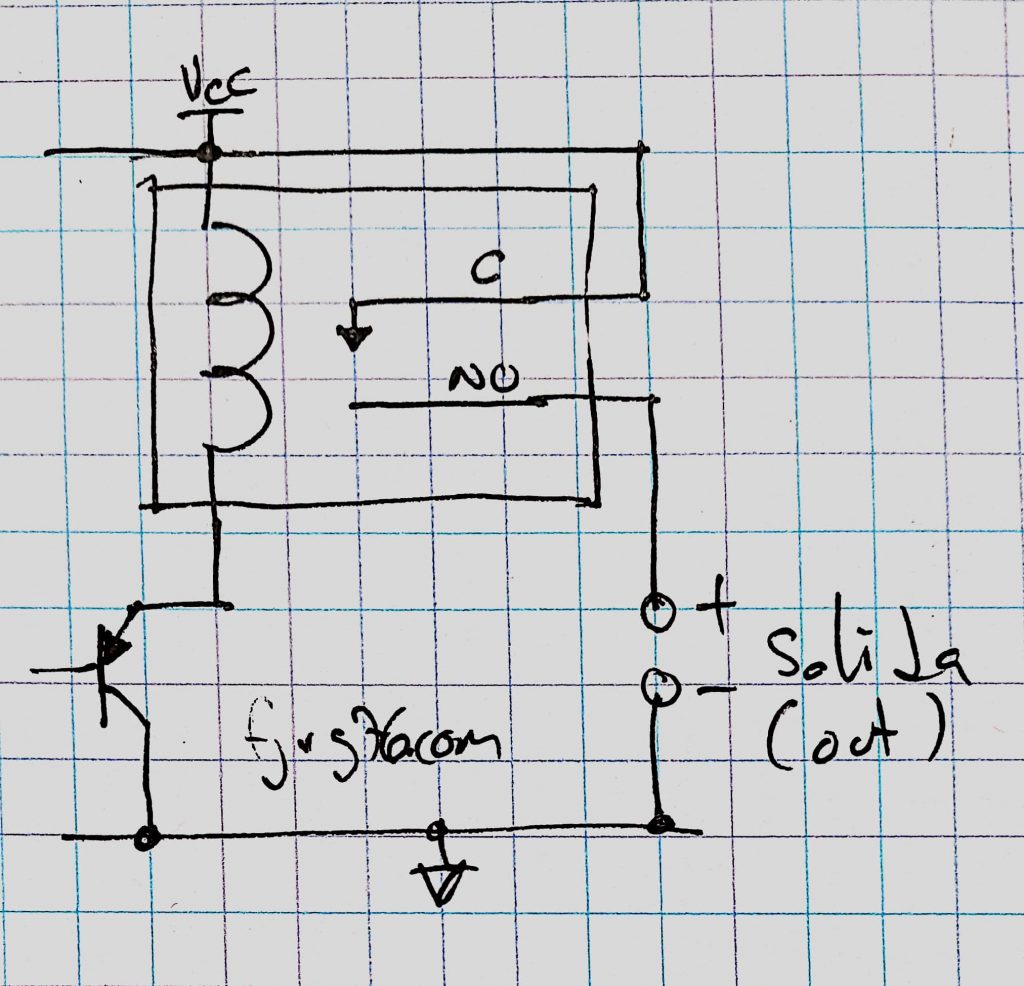 Vcc
C
NO
+
-
Salida
(out)